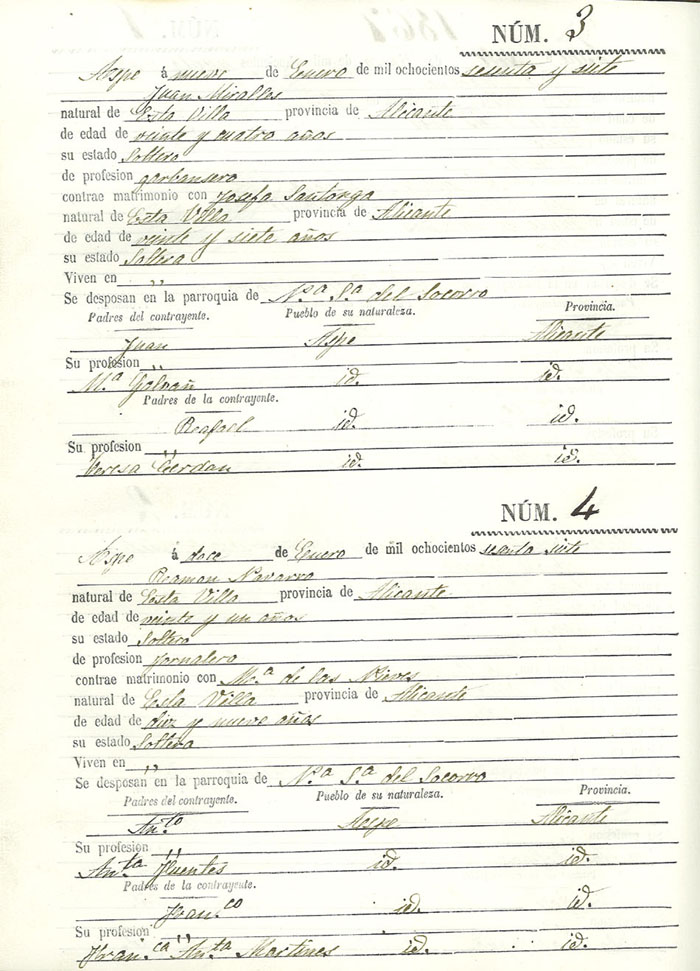 NÚM. 3
Aspe á nueve de Enero de mil ochocientos sesenta y siete
Juan Miralles
natural de Esta Villa provincia de Alicante
de edad de veinte y cuatro años
su estado Soltero
de profesion garbansero
contrae matrimonio con Josefa Santonga
natural de Esta Villa provincia de Alicante
de edad de veinte y siete años
su estado Soltera
Viven en ,,
Se desposan en la parroquia de N.ª S.ª del Socorro
Padres del contrayente. Pueblo de su naturaleza. Provincia.
Juan Aspe Alicante
Su profesion ,,
M.ª Galvañ id. id.
Padres de la contrayente.
Rafael id. id.
Su profesion ,,
Teresa Cerdan id. id.
NÚM. 4
Aspe á doce de Enero de mil ochocientos sesenta siete
Ramon Navarro
natural de Esta Villa provincia de Alicante
de edad de veinte y un años
su estado Soltero
de profesion jornalero
contrae matrimonio con M.ª de las Nieves
natural de Esta Villa provincia de Alicante
de edad de diez y nueve años
su estado Soltera
Viven en ,,
Se desposan en la parroquia de N.ª S.ª del Socorro
Padres del contrayente. Pueblo de su naturaleza. Provincia.
An.to Aspe Alicante
Su profesion ,,
An.ta Fuentes id. id.
Padres de la contrayente.
Fran.co id. id.
Su profesion ,,
Fran.ca An.ta Martines id. id.